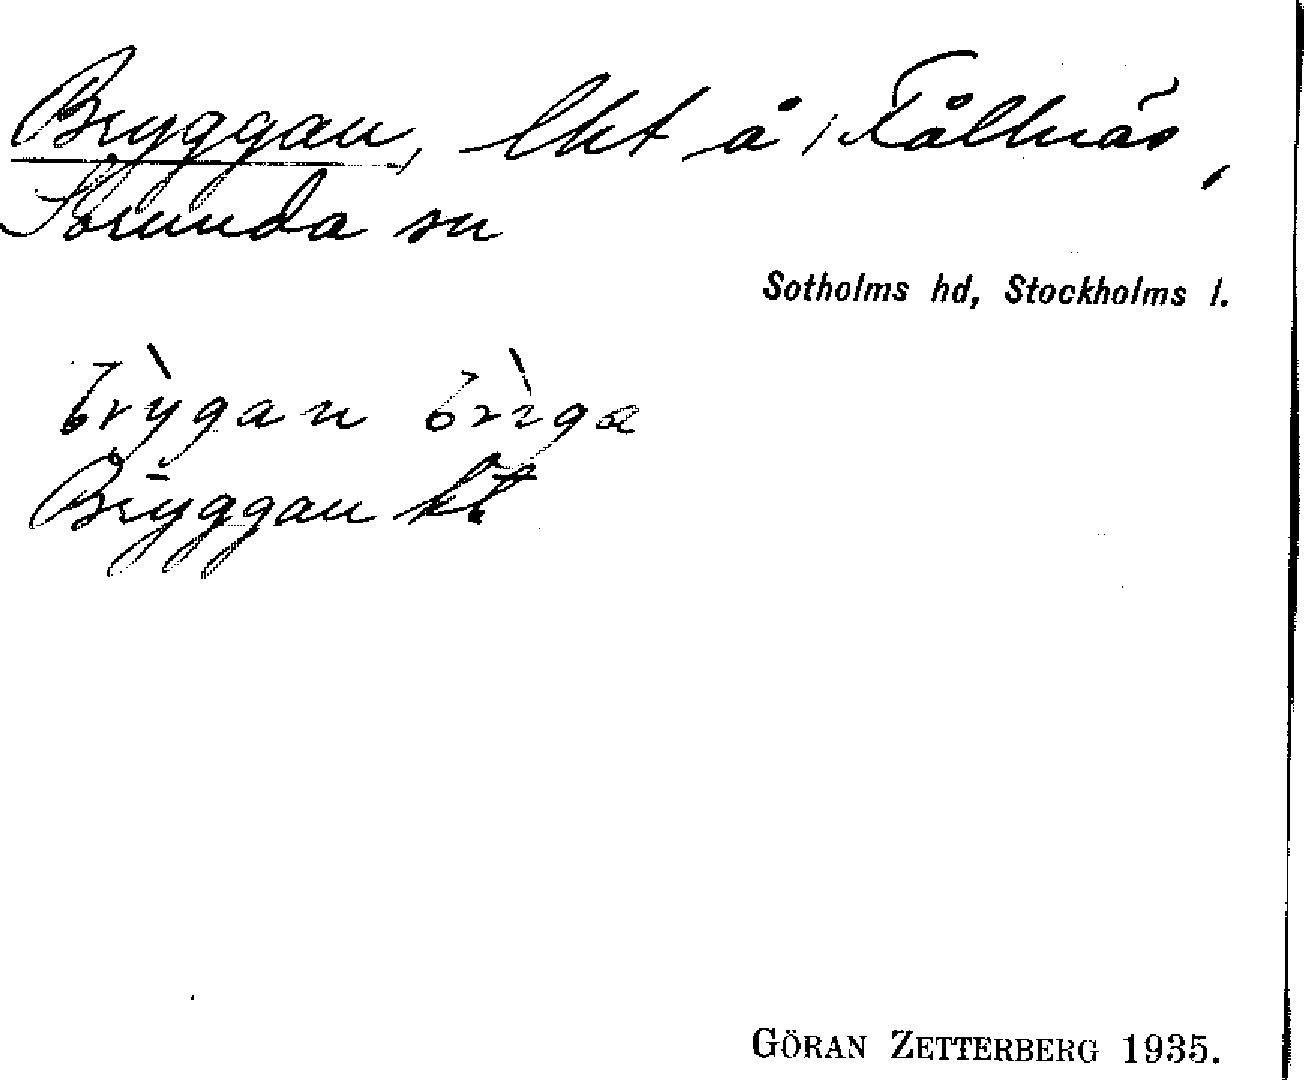 Bryggan, lht å Fållnäs,
Sorunda sn
Sotholms hd, Stockholms l.
brỳgan brìga
Bryggan kt
GÖRAN ZETTERBERG 1935.